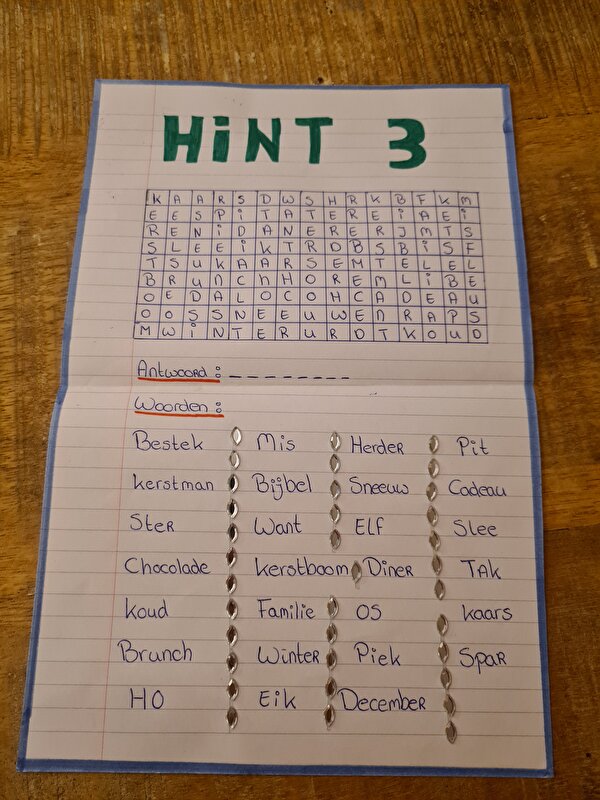 HiNT 3
K A A R S D W S H R K B F K M
E E S P i T A T E R E i A E i
R E N i D A N E R E R J M T S
S L E E i K T R D B S B i S F
T S U K A A R S E M T E L E L
B R U N C H H O R E M L i B E
O E D A L O C O H C A D E A U
O O S S N E E U W E N R A P S
M W i N T E R U R D T K O U D
Antwoord : _ _ _ _ _ _ _ _
Woorden :
Bestek Mis Herder Pit
Kerstman Bijbel Sneeuw Cadeau
Ster Want Elf Slee
Chocolade Kerstboom Diner Tak
Koud Familie OS Kaars
Brunch Winter Piek Spar
HO Eik December